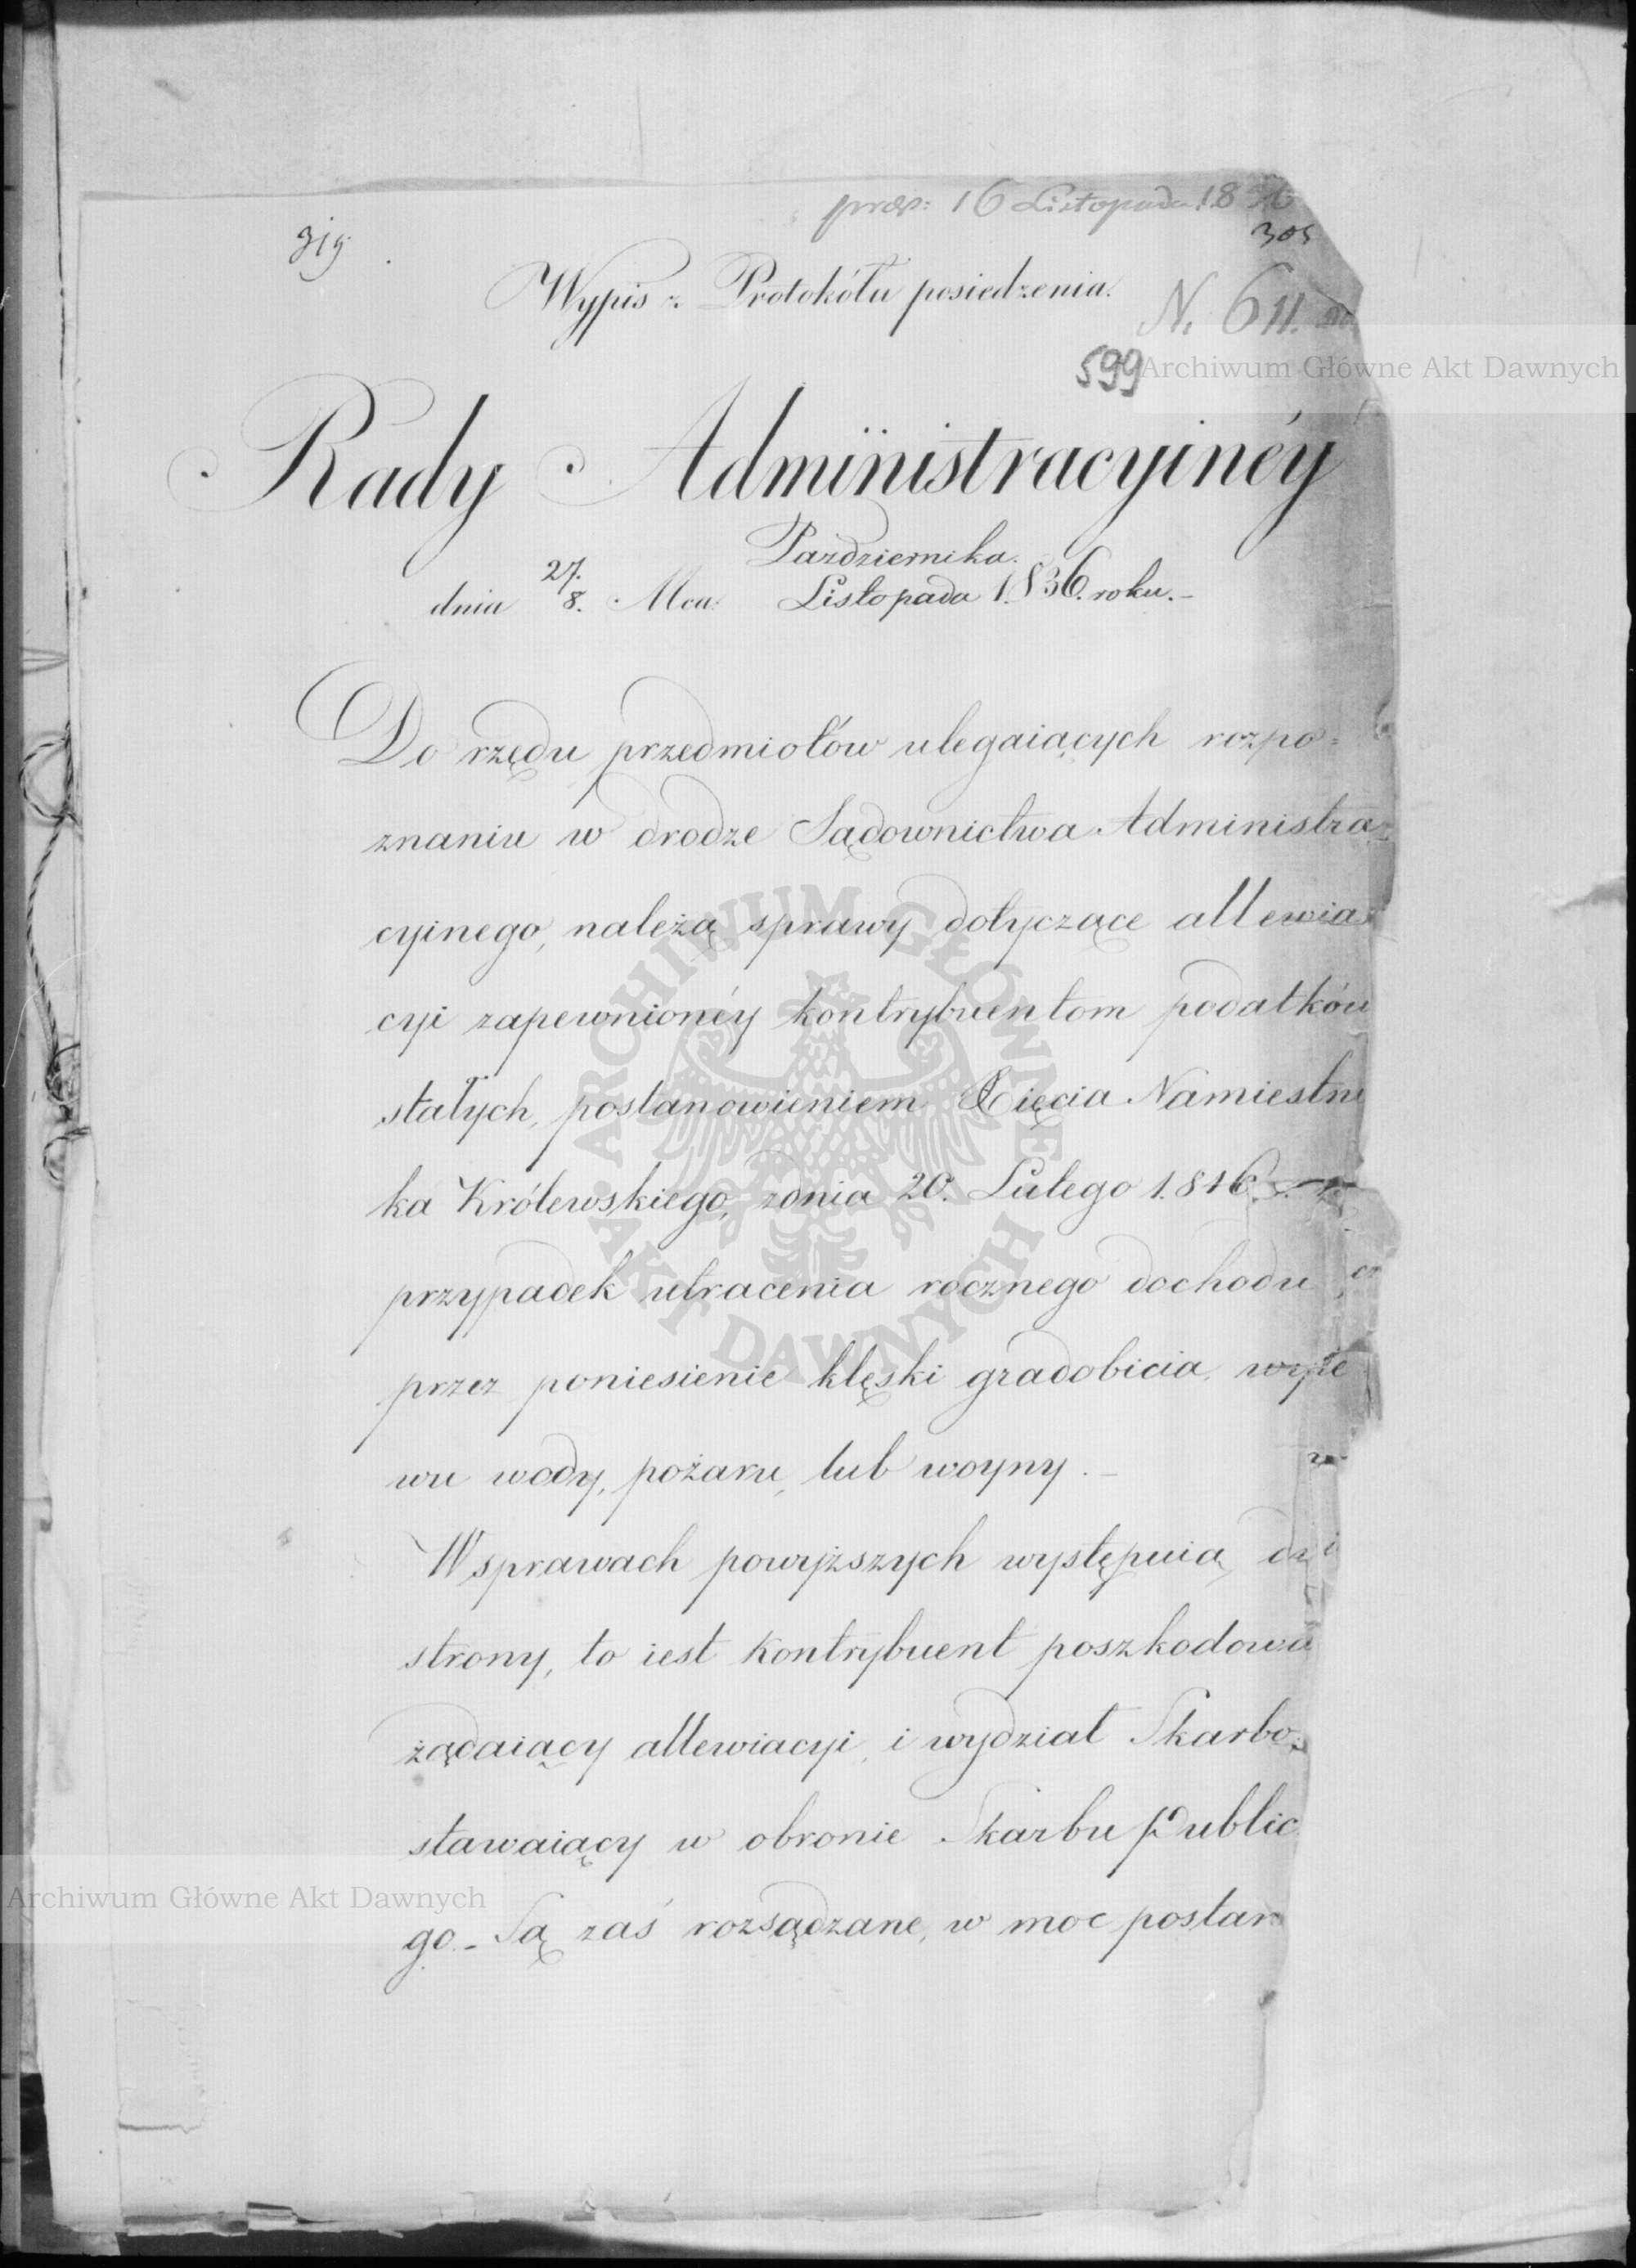 præs: 16 Listopada 1836
305
319
Wypis z Protokółu posiedzenia.
N. 611.
599
Archiwum Główne Akt Dawnych
Rady Administracyinéy
Pazdziernika.
27.
dnia 8. Mca Listopada 1.836. roku.-
Do rzędu przedmiotów ulegaiących rozpo=
znaniu w drodze Sądownictwa Administra=
cyinego, należą sprawy dotyczące allewia=
cyi zapewnionéy kontrybuentom podatków
stałych, postanowieniem Xięcia Namiestni
ka Królewskiego, zdnia 20. Lutego 1.816.
przypadek utracenia rocznego dochodu,
przez poniesienie klęski gradobicia, wyle
wu wody, pożaru, lub woyny.-
W sprawach powyższych występuią
strony, to iest Kontrybuent poszkodowa
żądaiący allewiacyi, i wydział Skarbo=
stawaiący w obronie Skarbu Public
go.- Są zaś rozsądzane, w moc postan
ARCHIWUM GŁÓWNE AKT DAWNYCH
Archiwum Główne Akt Dawnych